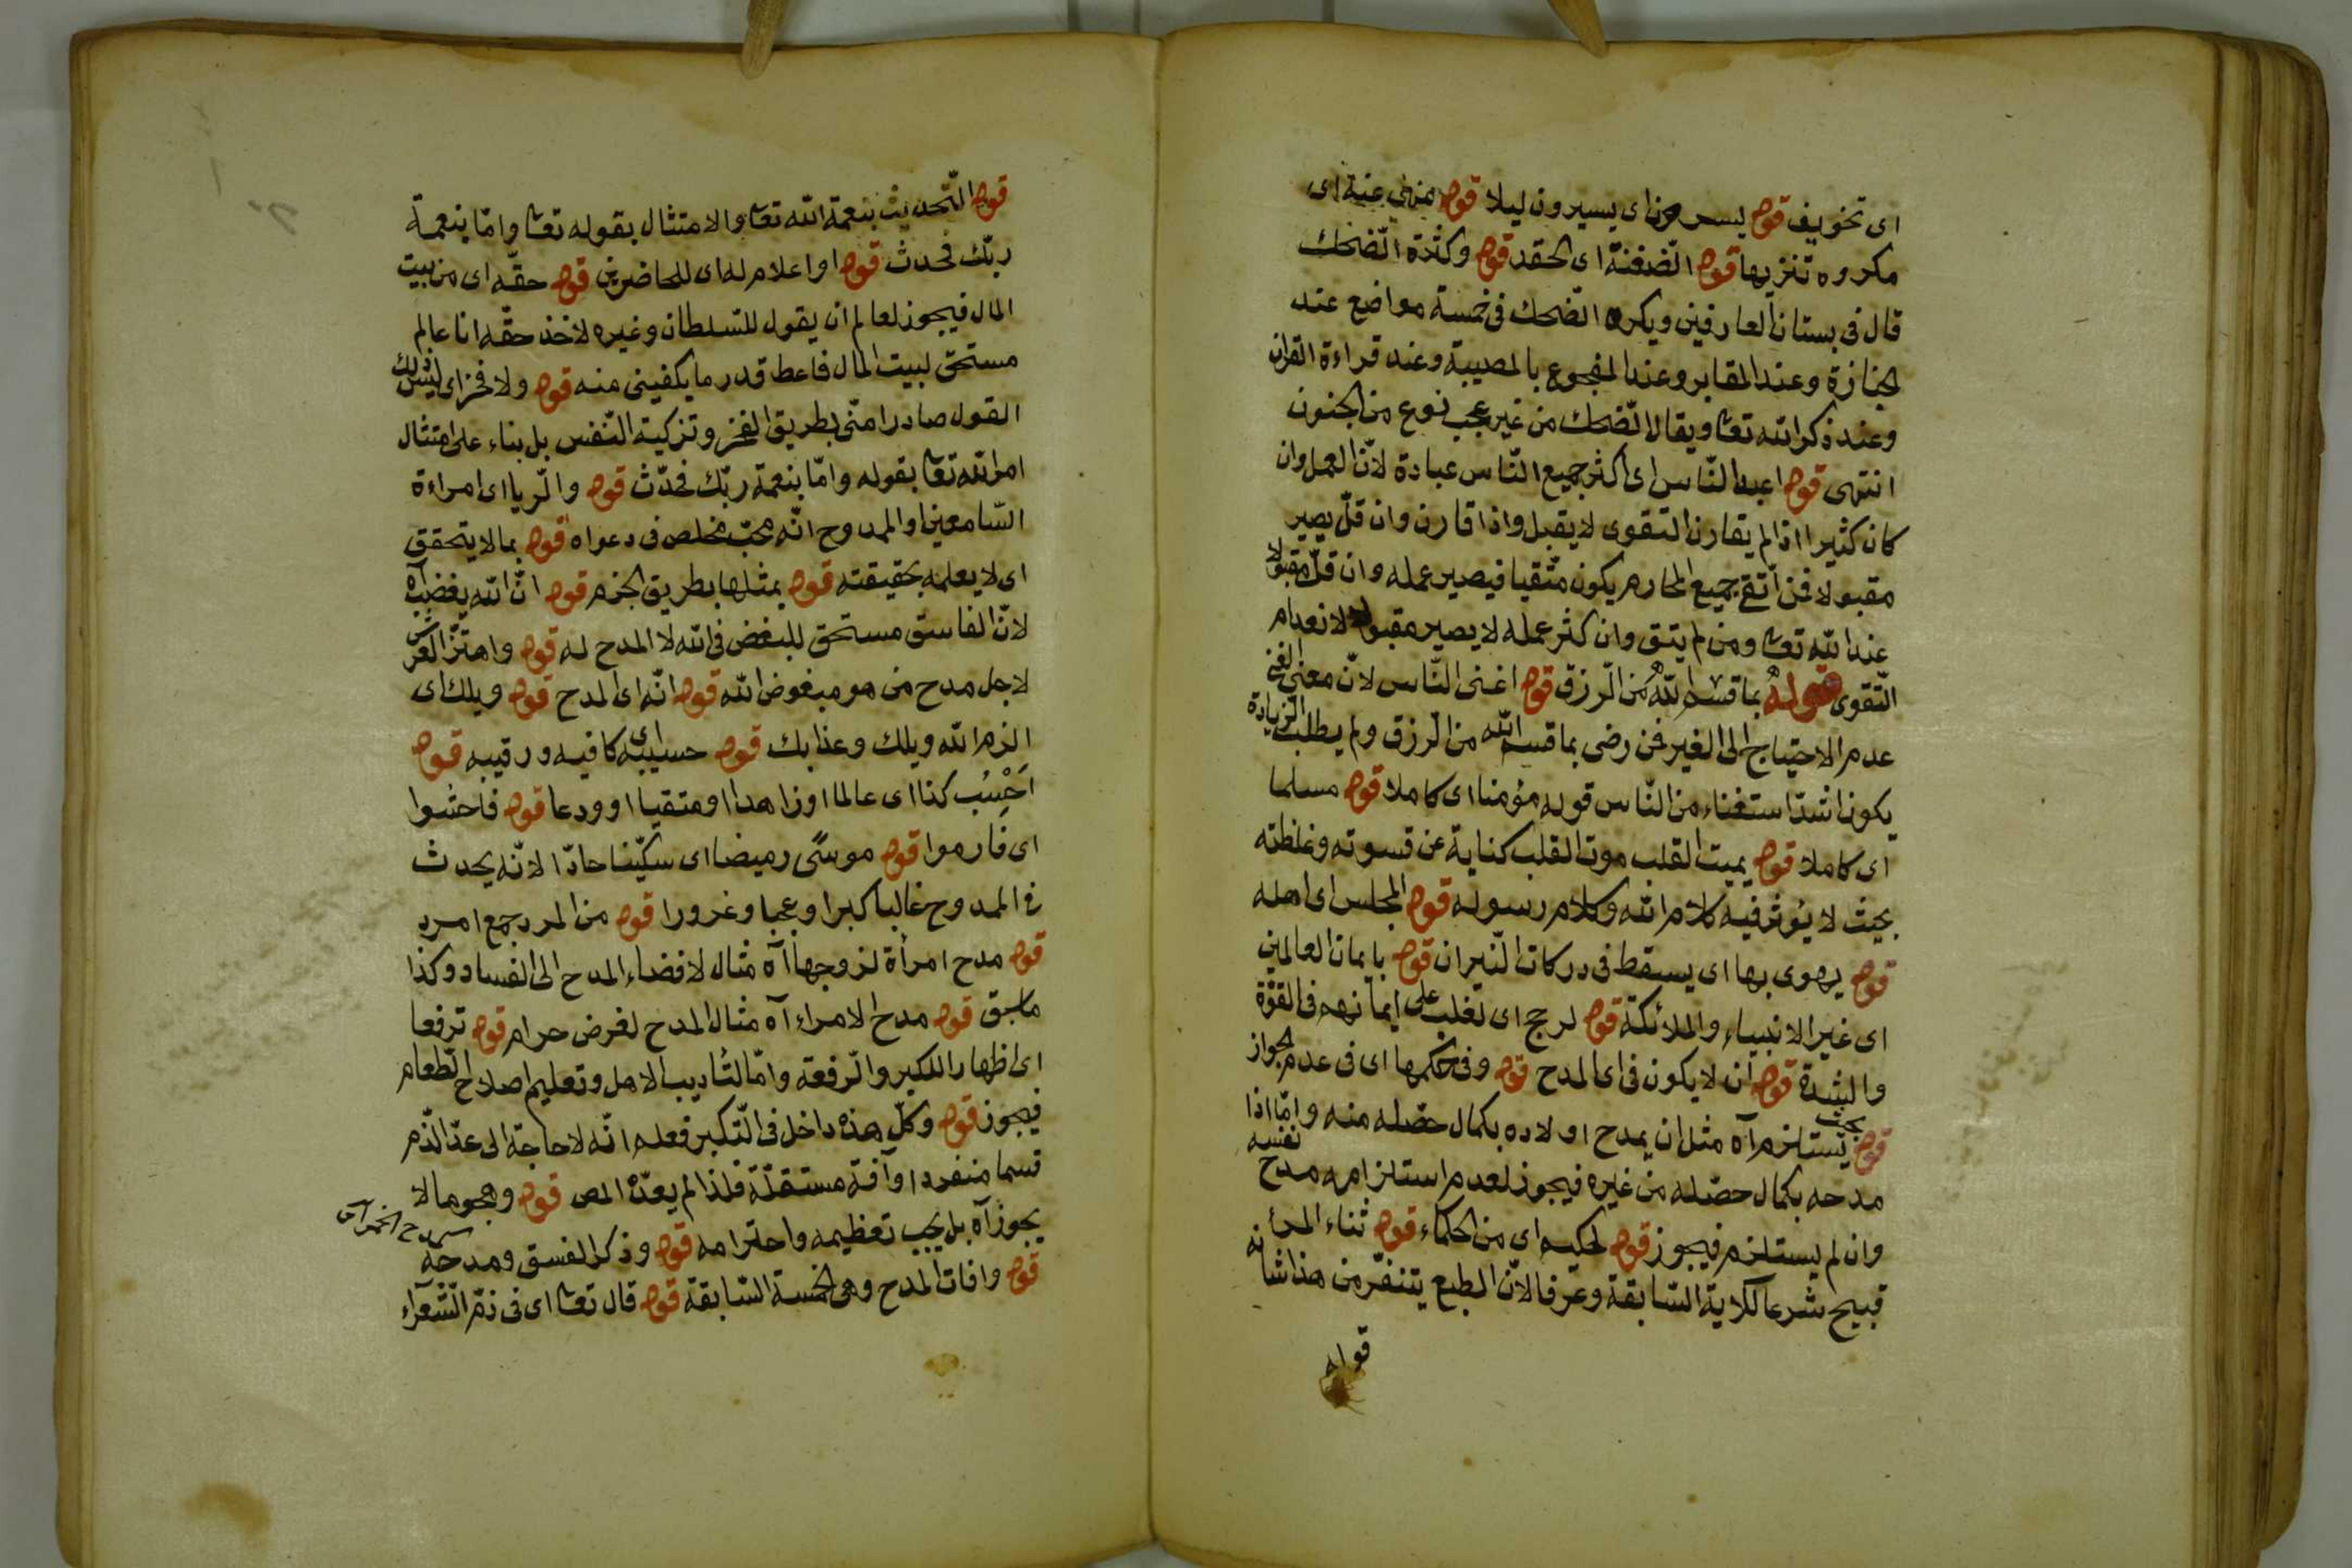 اى تخويف قوله يسرون اى يسيرون ليلا قوله منهى عنه اى
مكروه تنزيها قوله الضغنة اى الحقد قوله وكثرة الضحك
قال فى بستان العارفين ويكره الضحك فى خمسة مواضع عند
الجنازة وعند المقابر وعند المفجوع بالمصيبة وعند قراءة القرآن
وعند ذكر الله تعا ويقال الضحك من غير عجب نوع من الجنون
انتهى قوله اعبد الناس اى اكثر جميع الناس عبادة لانّ العمل وان
كان كثيرا اذا لم يقارن التقوى لا يقبل واذا قارن وان قلّ يصير
مقبولا فمن اتقى جميع المحارم يكون متّقيا فيصير عمله وان قلّ مقبولا
عند الله تعا ومن لم يتق وان كثر عمله لا يصير مقبولا لانعدام
التّقوى قوله بما قسم الله من الرّزق قوله اغنى النّاس لانّ معنى الغنى
عدم الاحتياج الى الغير فمن رضى بما قسم الله من الرّزق ولم يطلب الزيادة
يكون اشدّ استغناء من النّاس قوله مؤمنا اى كاملا قوله مسلما
اى كاملا قوله يميت القلب موت القلب كناية عن قسوته وغلظته
بحيث لا يؤثر فيه كلام الله وكلام رسوله قوله المجلس اى اهله
قوله يهوى بها اى يسقط فى دركات النّيران قوله بايمان العالمين
اى غير الانبياء والملائكة قوله لرجح اى لغلب على ايمانهم فى القوّة
والشدة قوله ان لا يكون فى اى المدح قوله وفى حكمها اى فى عدم الجواز
قوله بحيث يستلزم آه مثل ان يمدح اولاده بكمال حصّله منه وامّا اذا
مدحه بكمال حصّله من غيره فيجوز لعدم استلزامه مدح نفسه
وان لم يستلزم فيجوز قوله لحكيم اى من الحكماء قوله ثناء المرء
قبيح شرعا للاية السّابقة وعرفا لانّ الطبع يتنفّر من هذا شانه
قوله
قوله التّحديث بنعمة الله تعا والامتثال بقوله تعا وامّا بنعمة
ربّك فحدث قوله او اعلام له اى للحاضرين قوله حقّه اى من بيت
المال فيجوز لعالم ان يقول للسّلطان وغيره لاخذ حقّه انا عالم
مستحق لبيت المال فاعط قدر ما يكفينى منه قوله ولا فخر اى ليس ذلك
القول صادرا منّى بطريق الفخر وتزكية النّفس بل بناء على امتثال
امر الله تعا بقوله وامّا بنعمة ربّك فحدّث قوله والرّيا اى امراءة
السّامعين او الممدوح انّه محبّ مخلص فى دعواه قوله بما لا يتحقق
اى لا يعلمه بحقيقته قوله بمثلها بطريق الجزم قوله انّ الله يغضب آه
لانّ الفاسق مستحق للبغض فى الله لا المدح له قوله واهتزّ العرش
لاجل مدح من هو مبغوض الله قوله انّه اى المدح قوله ويلك اى
الزم الله ويلك وعذابك قوله حسيبه اى كافيه ورقيبه قوله
اَحْسِبُ كذا اى عالما او زاهدا او متقيا او ودعا قوله فاحثوا
اى فارموا قوله موسًى رميضا اى سكّينا حادّا لانّه يحدث
فى الممدوح غالبا كبرا وعجبا وغرورا قوله من المرد جمع امرد
قوله مدح امرأة لزوجها آه مثال لافضاء المدح الى الفساد وكذا
ما سبق قوله مدح الامراء آه مثال المدح لغرض حرام قوله ترفعا
اى اظهارا للكبر والرّفعة وامّا لتأديب الاهل وتعليم اصلاح الطّعام
فيجوز قوله وكلّ هذه داخل فى التّكبر فعلم انّه لا حاجة الى عدّ الذّم
قسما منفردا وآفة مستقلّة فلذا لم يعدّه المص قوله وهجو ما لا
يجوز آه بل يجب تعظيمه واحترامه قوله وذكر الفسق ومدحه
قوله وافات المدح وهى الخمسة السّابقة قوله قال تعا اى فى ذمّ الشّعرآء